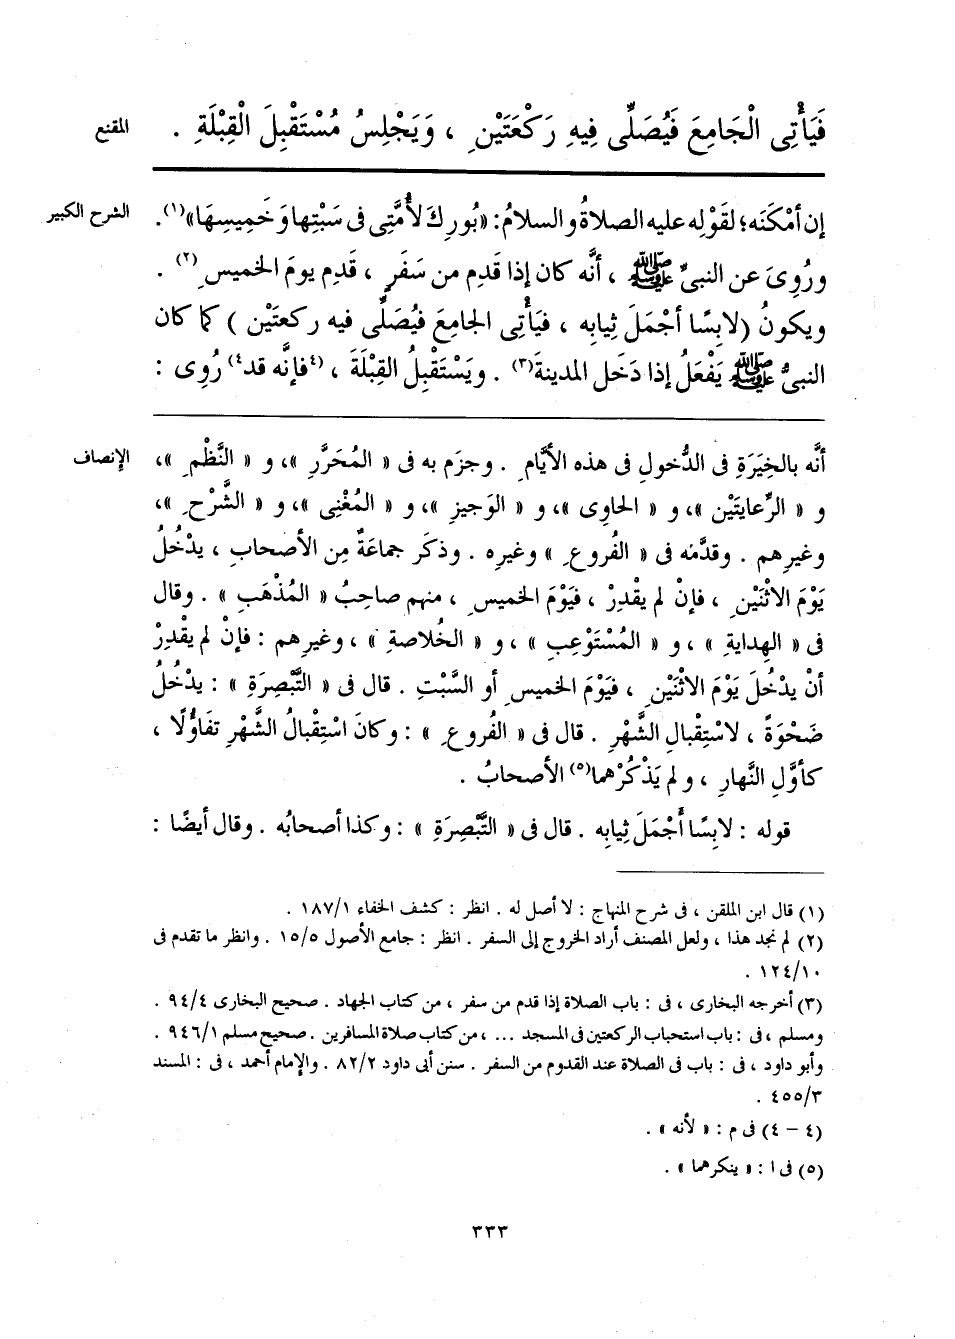 المقنع
فَيَأْتِى الْجَامِعَ فَيُصَلِّى فِيهِ رَكْعَتَيْنِ ، وَيَجْلِسُ مُسْتَقْبِلَ الْقِبْلَةِ .
الشرح الكبير
إن أمْكَنَه ؛ لقَوْلِه عليه الصلاةُ والسلامُ : «بُورِكَ لأُمَّتِى فى سَبْتِها وَخَمِيسِهَا»(١) .
ورُوِىَ عن النبىِّ ﷺ ، أنَّه كان إذا قَدِم من سَفَرٍ ، قَدِم يومَ الخميسِ(٢) .
ويكونُ (لابِسًا أجْمَلَ ثِيابِه ، فيَأْتِى الجامِعَ فيُصَلِّى فيه ركعتَيْن ) كما كان
النبىُّ ﷺ يَفْعَلُ إذا دَخَل المدينةَ(٣) . ويَسْتَقْبِلُ القِبْلَةَ ، (٤فإنَّه قد٤) رُوِى :
الإنصاف
أنَّه بالخِيَرَةِ فى الدُّخولِ فى هذه الأيَّامِ . وجزَم به فى « المُحَرَّرِ » ، و « النَّظْمِ » ،
و « الرِّعايتَيْن » ، و « الحاوِى » ، و « الوَجيزِ » ، و « المُغْنِى » ، و « الشَّرْحِ » ،
وغيرِهم . وقدَّمَه فى « الفُروعِ » وغيرِه . وذكَر جماعَةٌ مِن الأصحابِ ، يدْخُلُ
يَوْمَ الاثْنَيْنِ ، فإنْ لم يقْدِرْ ، فيَوْمَ الخميسِ ، منهم صاحِبُ « المُذْهَبِ » . وقال
فى « الهِدايةِ » ، و « المُسْتَوْعِبِ » ، و « الخُلاصةِ » ، وغيرِهم : فإنْ لم يقْدِرْ
أنْ يدْخُلَ يَوْمَ الاثْنَيْنِ ، فيَوْمَ الخميسِ أو السَّبْتِ . قال فى « التَّبْصِرَةِ » : يدْخُلُ
ضَحْوَةً ، لاسْتِقْبالِ الشَّهْرِ . قال فى « الفُروعِ » : وكانَ اسْتِقْبالُ الشَّهْرِ تفاؤُلًا ،
كأوَّلِ النَّهارِ ، ولم يَذْكُرْهما(٥) الأصحابُ .
قوله : لابِسًا أَجْمَلَ ثِيابِه . قال فى « التَّبْصِرَةِ » : وكذا أصحابُه . وقال أيضًا :
(١) قال ابن الملقن ، فى شرح المنهاج : لا أصل له . انظر : كشف الخفاء ١٨٧/١ .
(٢) لم نجد هذا ، ولعل المصنف أراد الخروج إلى السفر . انظر : جامع الأصول ١٥/٥ . وانظر ما تقدم فى
١٢٤/١٠ .
(٣) أخرجه البخارى ، فى : باب الصلاة إذا قدم من سفر ، من كتاب الجهاد . صحيح البخارى ٩٤/٤ .
ومسلم ، فى : باب استحباب الركعتين فى المسجد ... ، من كتاب صلاة المسافرين . صحيح مسلم ٩٤٦/١ .
وأبو داود ، فى : باب فى الصلاة عند القدوم من السفر . سنن أبى داود ٨٢/٢ . والإمام أحمد ، فى : المسند
٤٥٥/٣ .
(٤ – ٤) فى م : « لأنه » .
(٥) فى ا : « ينكرهما » .
٣٣٣